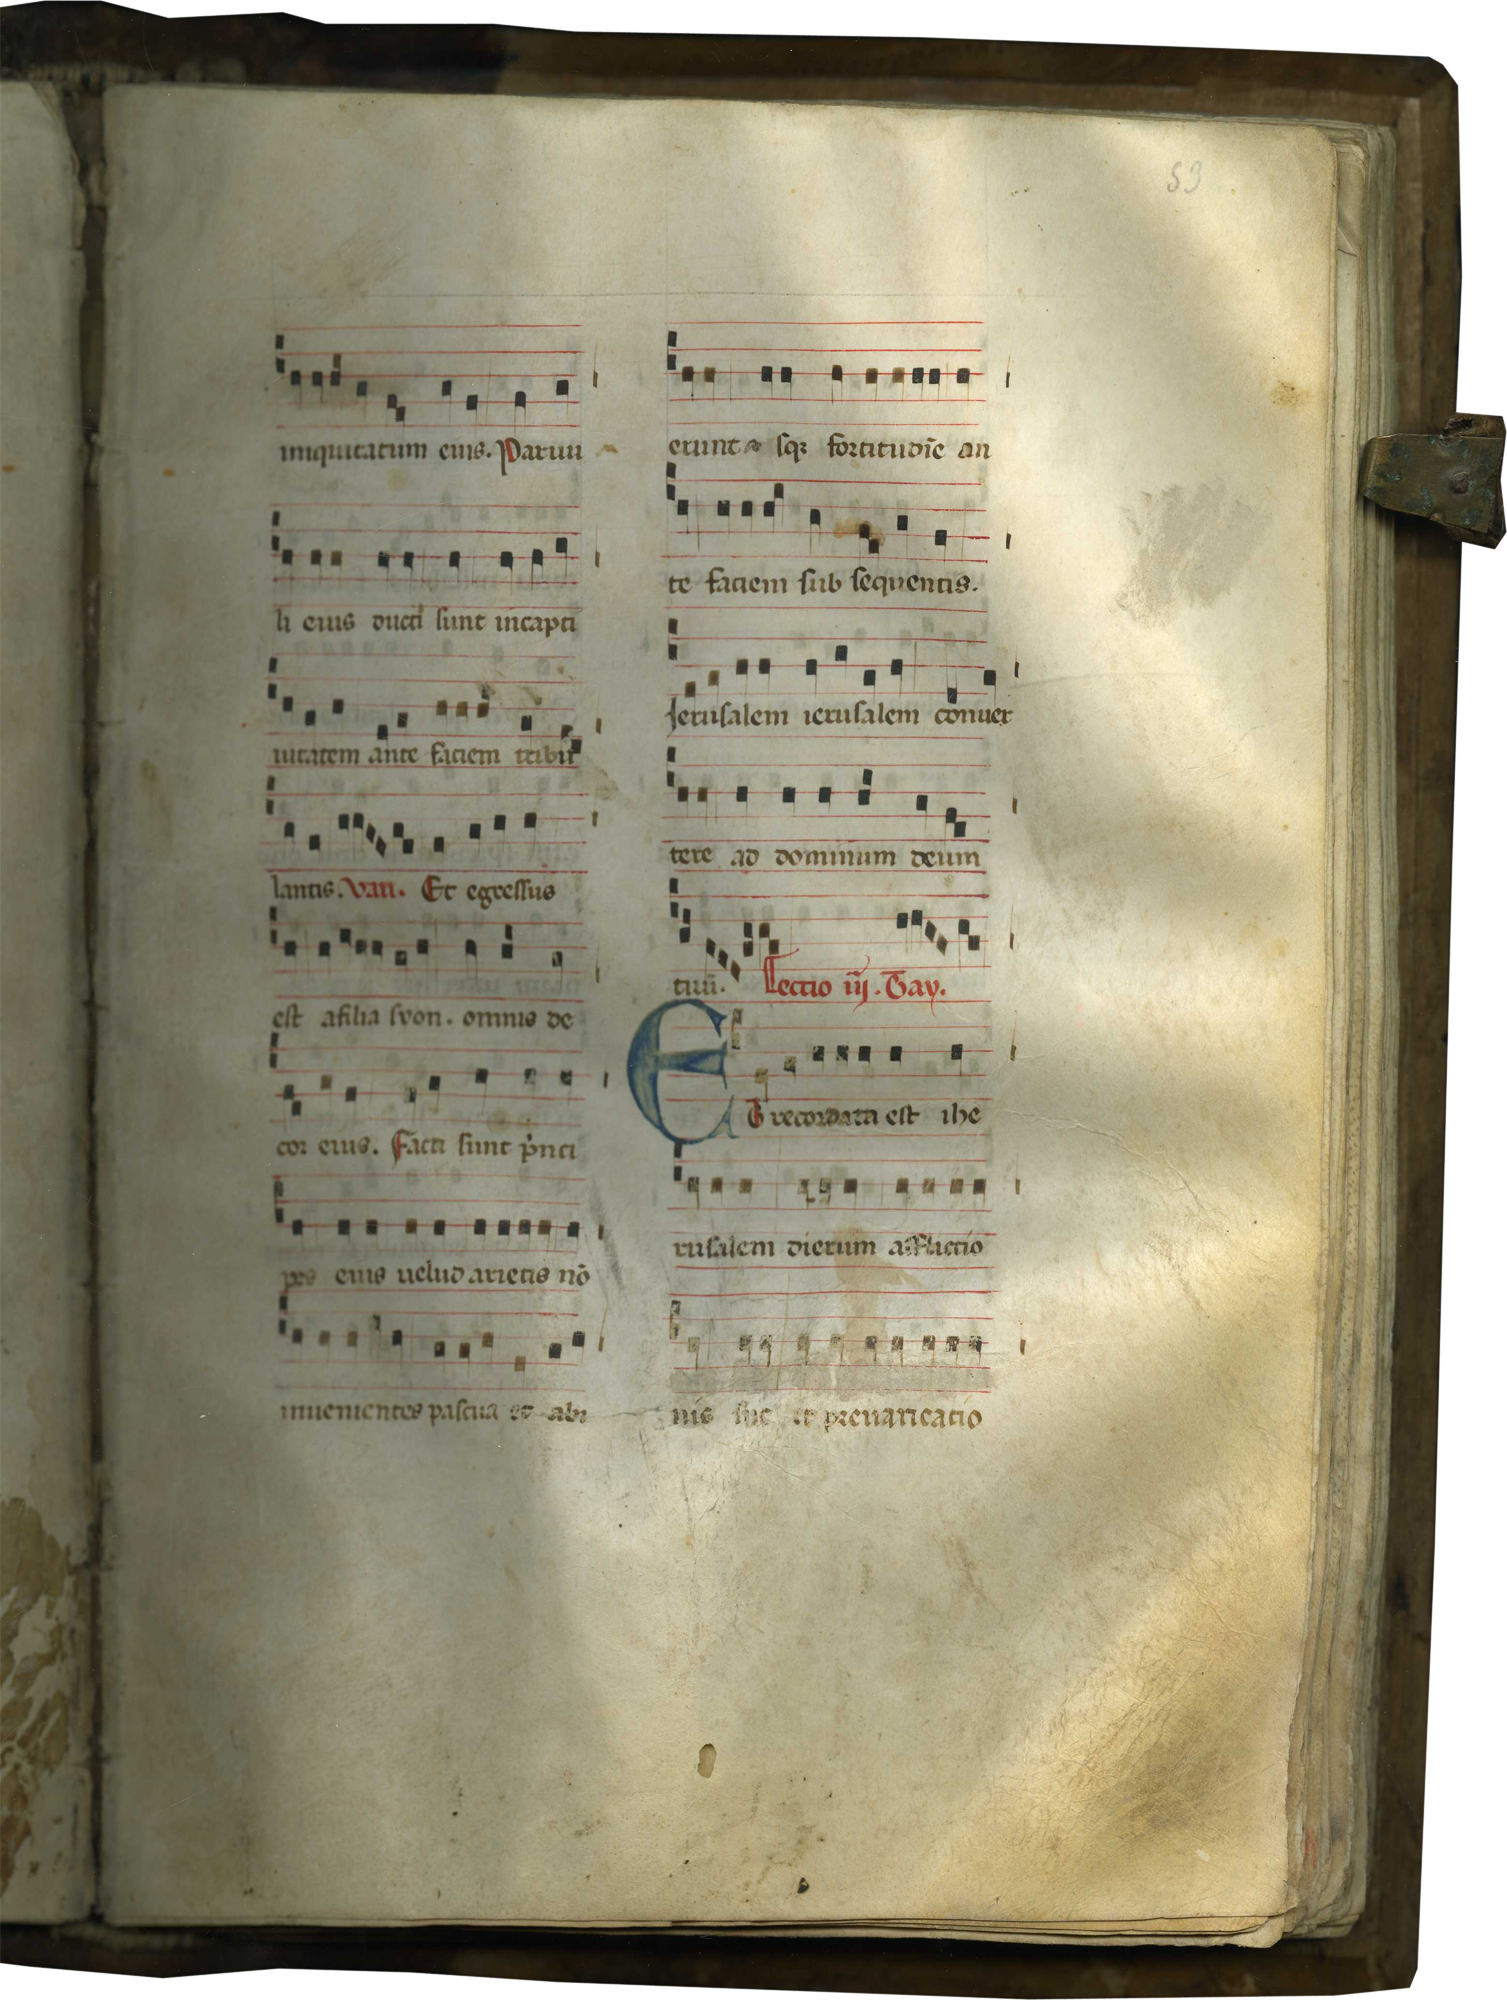 53
iniquitatum eius. Paruu
li eius ducti sunt incapti
uitatem ante faciem tribu
lantis. Vau. Et egressus
est afilia syon. omnis de
cor eius. Facti sunt p̉nci
pes eius uelud arietis nō
inuenientes pascua et abi
erunt absq; fortitudīe an
te faciem sub sequentis.
Jerusalem ierusalem conuer
tere ad dominum deum
tuū. Lectio iij. Zay.
ET recordata est ihe
rusalem dierum afflictio
nis sue et preuaricatio